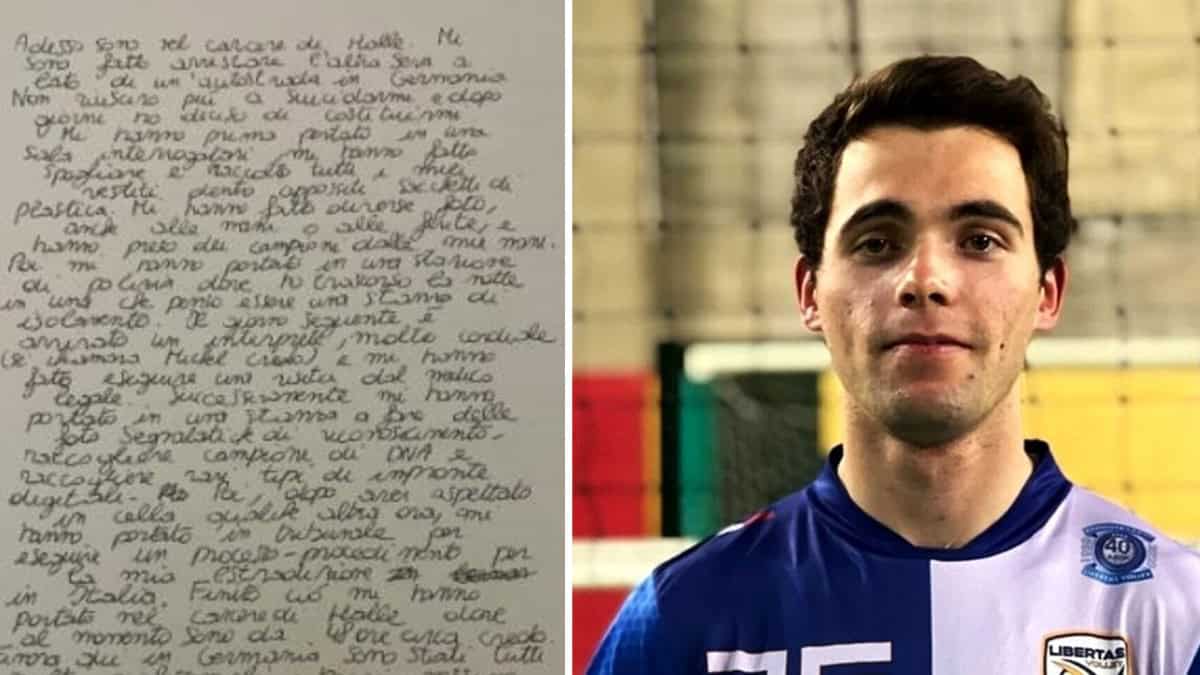 Adesso sono nel carcere di Halle. Mi
sono fatto arrestare l'altra sera a
lato di un'autostrada in Germania
Non riuscivo più a suicidarmi e dopo
giorni ho deciso di costituirmi
Mi hanno prima portato in una
sala interrogatori, mi hanno fatto
spogliare e raccolto tutti i miei
vestiti dentro appositi sacchetti di
plastica. Mi hanno fatto diverse foto,
anche alle mani o alle ferite, e
hanno preso dei campione dalle mie mani.
Poi mi hanno portato in una stazione
di polizia dove ho trascorso la notte
in una che penso essere una stanza di
isolamento. Il giorno seguente è
arrivato un interprete molto cordiale
(si chiamava Michel credo) e mi hanno
fatto eseguire una visita dal medico
legale. Successivamente mi hanno
portato in una stanza a fare delle
foto segnaletiche di riconoscimento,
raccogliere campione di DNA e
raccogliere vari tipi di impronte
digitali. Poi, dopo aver aspettato
in cella qualche altra ora, mi
hanno portato in tribunale per
eseguire un processo-procedimento per
la mia estradizione
in Italia. Finito ciò mi hanno
portato nel carcere di Halle dove
al momento sono da 48 ore circa credo.
che in Germania sono stati tutti
40
LIBERTAS VOLLEY
LIBERTAS
VOLLEY
75